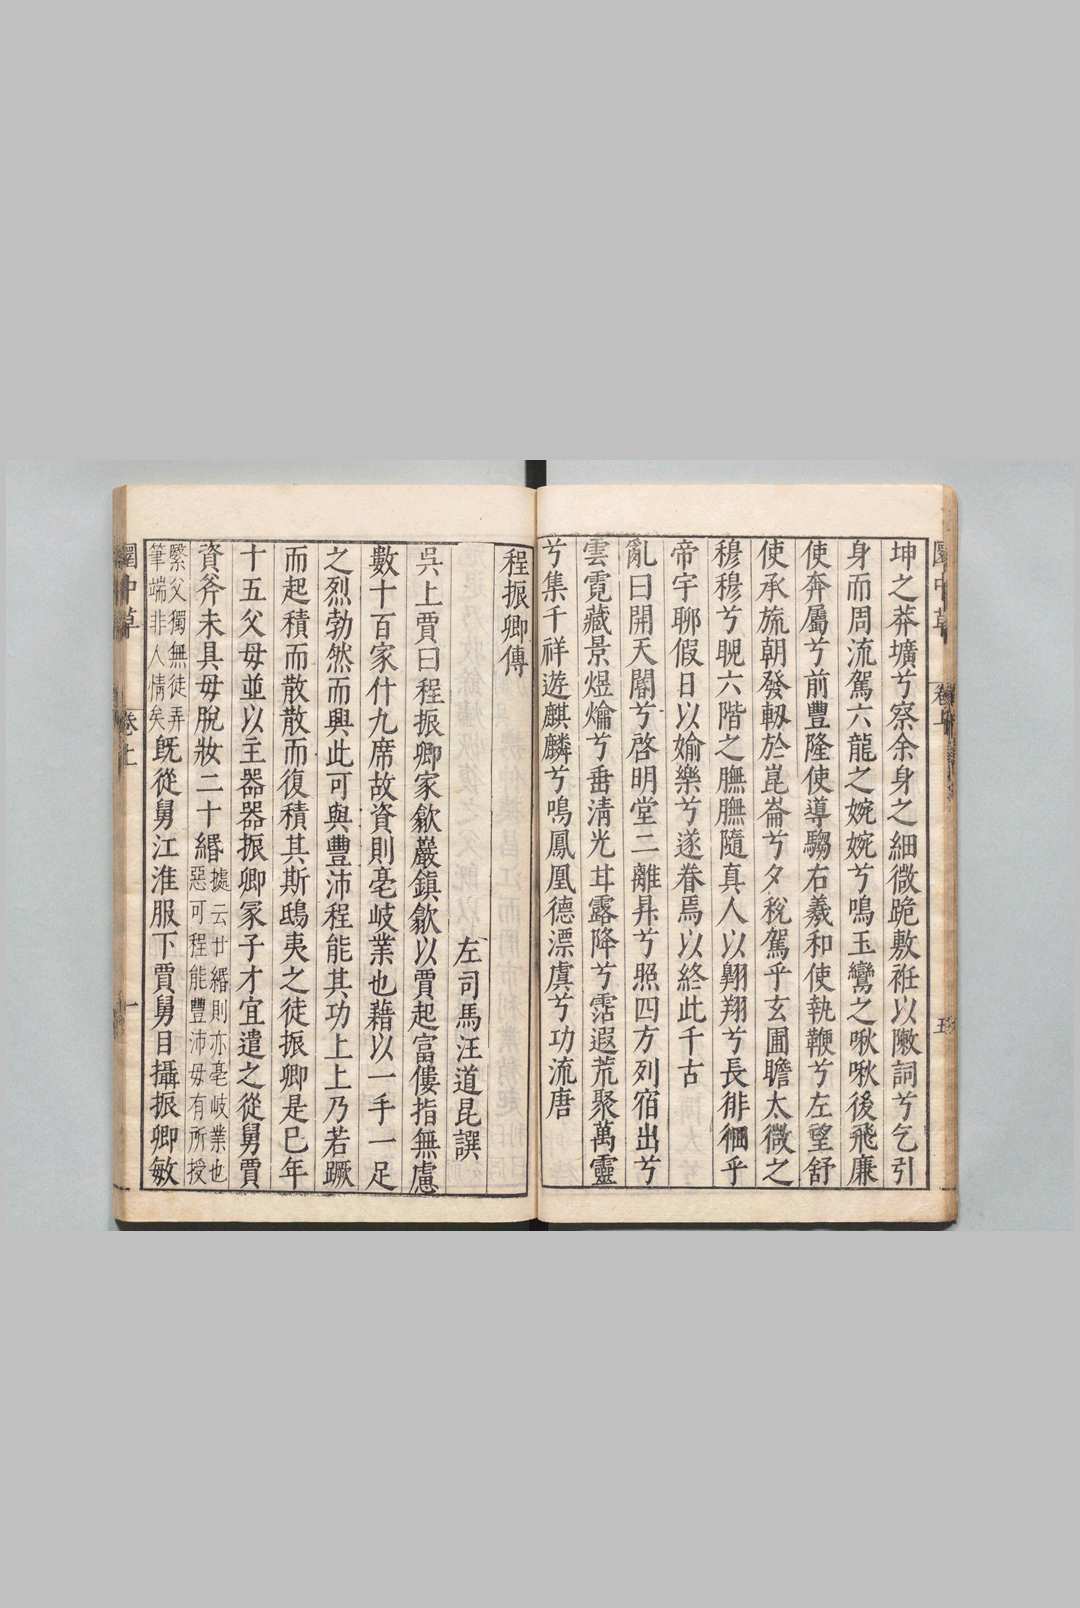 坤之莽壙兮察余身之細微跪敷袵以敶詞兮乞引
身而周流駕六龍之婉婉兮鳴玉鸞之啾啾後飛廉
使奔屬兮前豐隆使導騶右羲和使執鞭兮左望舒
使承旒朝發軔於崑崙兮夕稅駕乎玄圃瞻太微之
穆穆兮睨六階之膴膴隨真人以翱翔兮長徘徊乎
帝宇聊假日以媮樂兮遂眷焉以終此千古
亂曰開天闢兮啓明堂二離昇兮照四方列宿出兮
雲霓藏景煜爚兮垂清光甘露降兮霑遐荒聚萬靈
兮集千祥遊麒麟兮鳴鳳凰德漂虞兮功流唐
卷上
五
程振卿傳
左司馬汪道昆譔
吳上賈曰程振卿家歙巖鎮歙以賈起富僂指無慮
數十百家什九席故資則亳岐業也藉以一手一足
之烈勃然而興此可與豐沛程能其功上上乃若蹶
而起積而散散而復積其斯鴟夷之徒振卿是已年
十五父毋並以主器器振卿冢子才宜遣之從舅賈
資斧未具毋脫妝二十緡
據云廿緡則亦亳岐業也
惡可程能豐沛毋有所授
繄父獨無徒弄
筆端非人情矣
既從舅江淮服下賈舅目攝振卿敏
中草
卷上
一